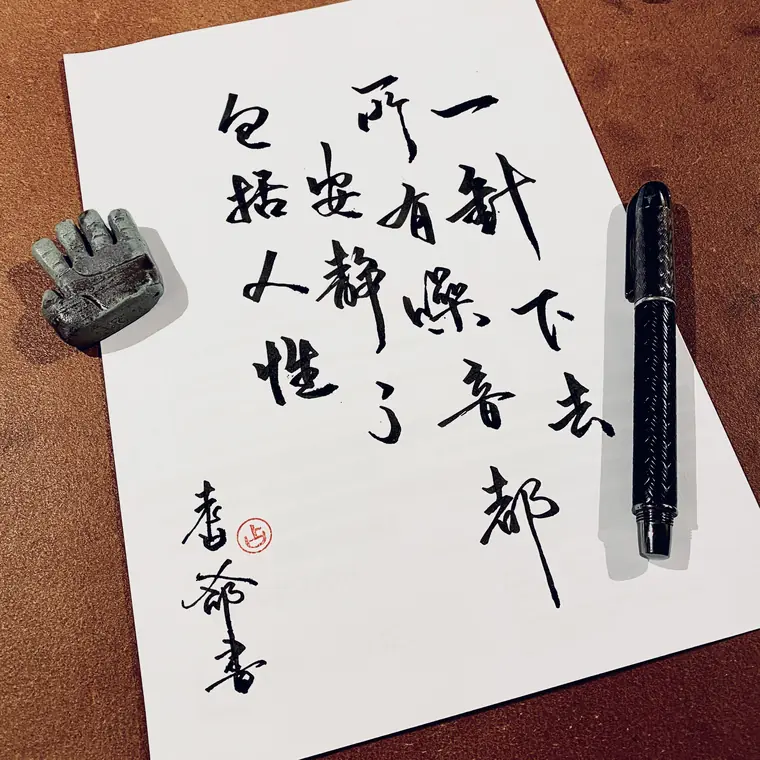 一針下去
所有噪音都
安静了
包括人性
書